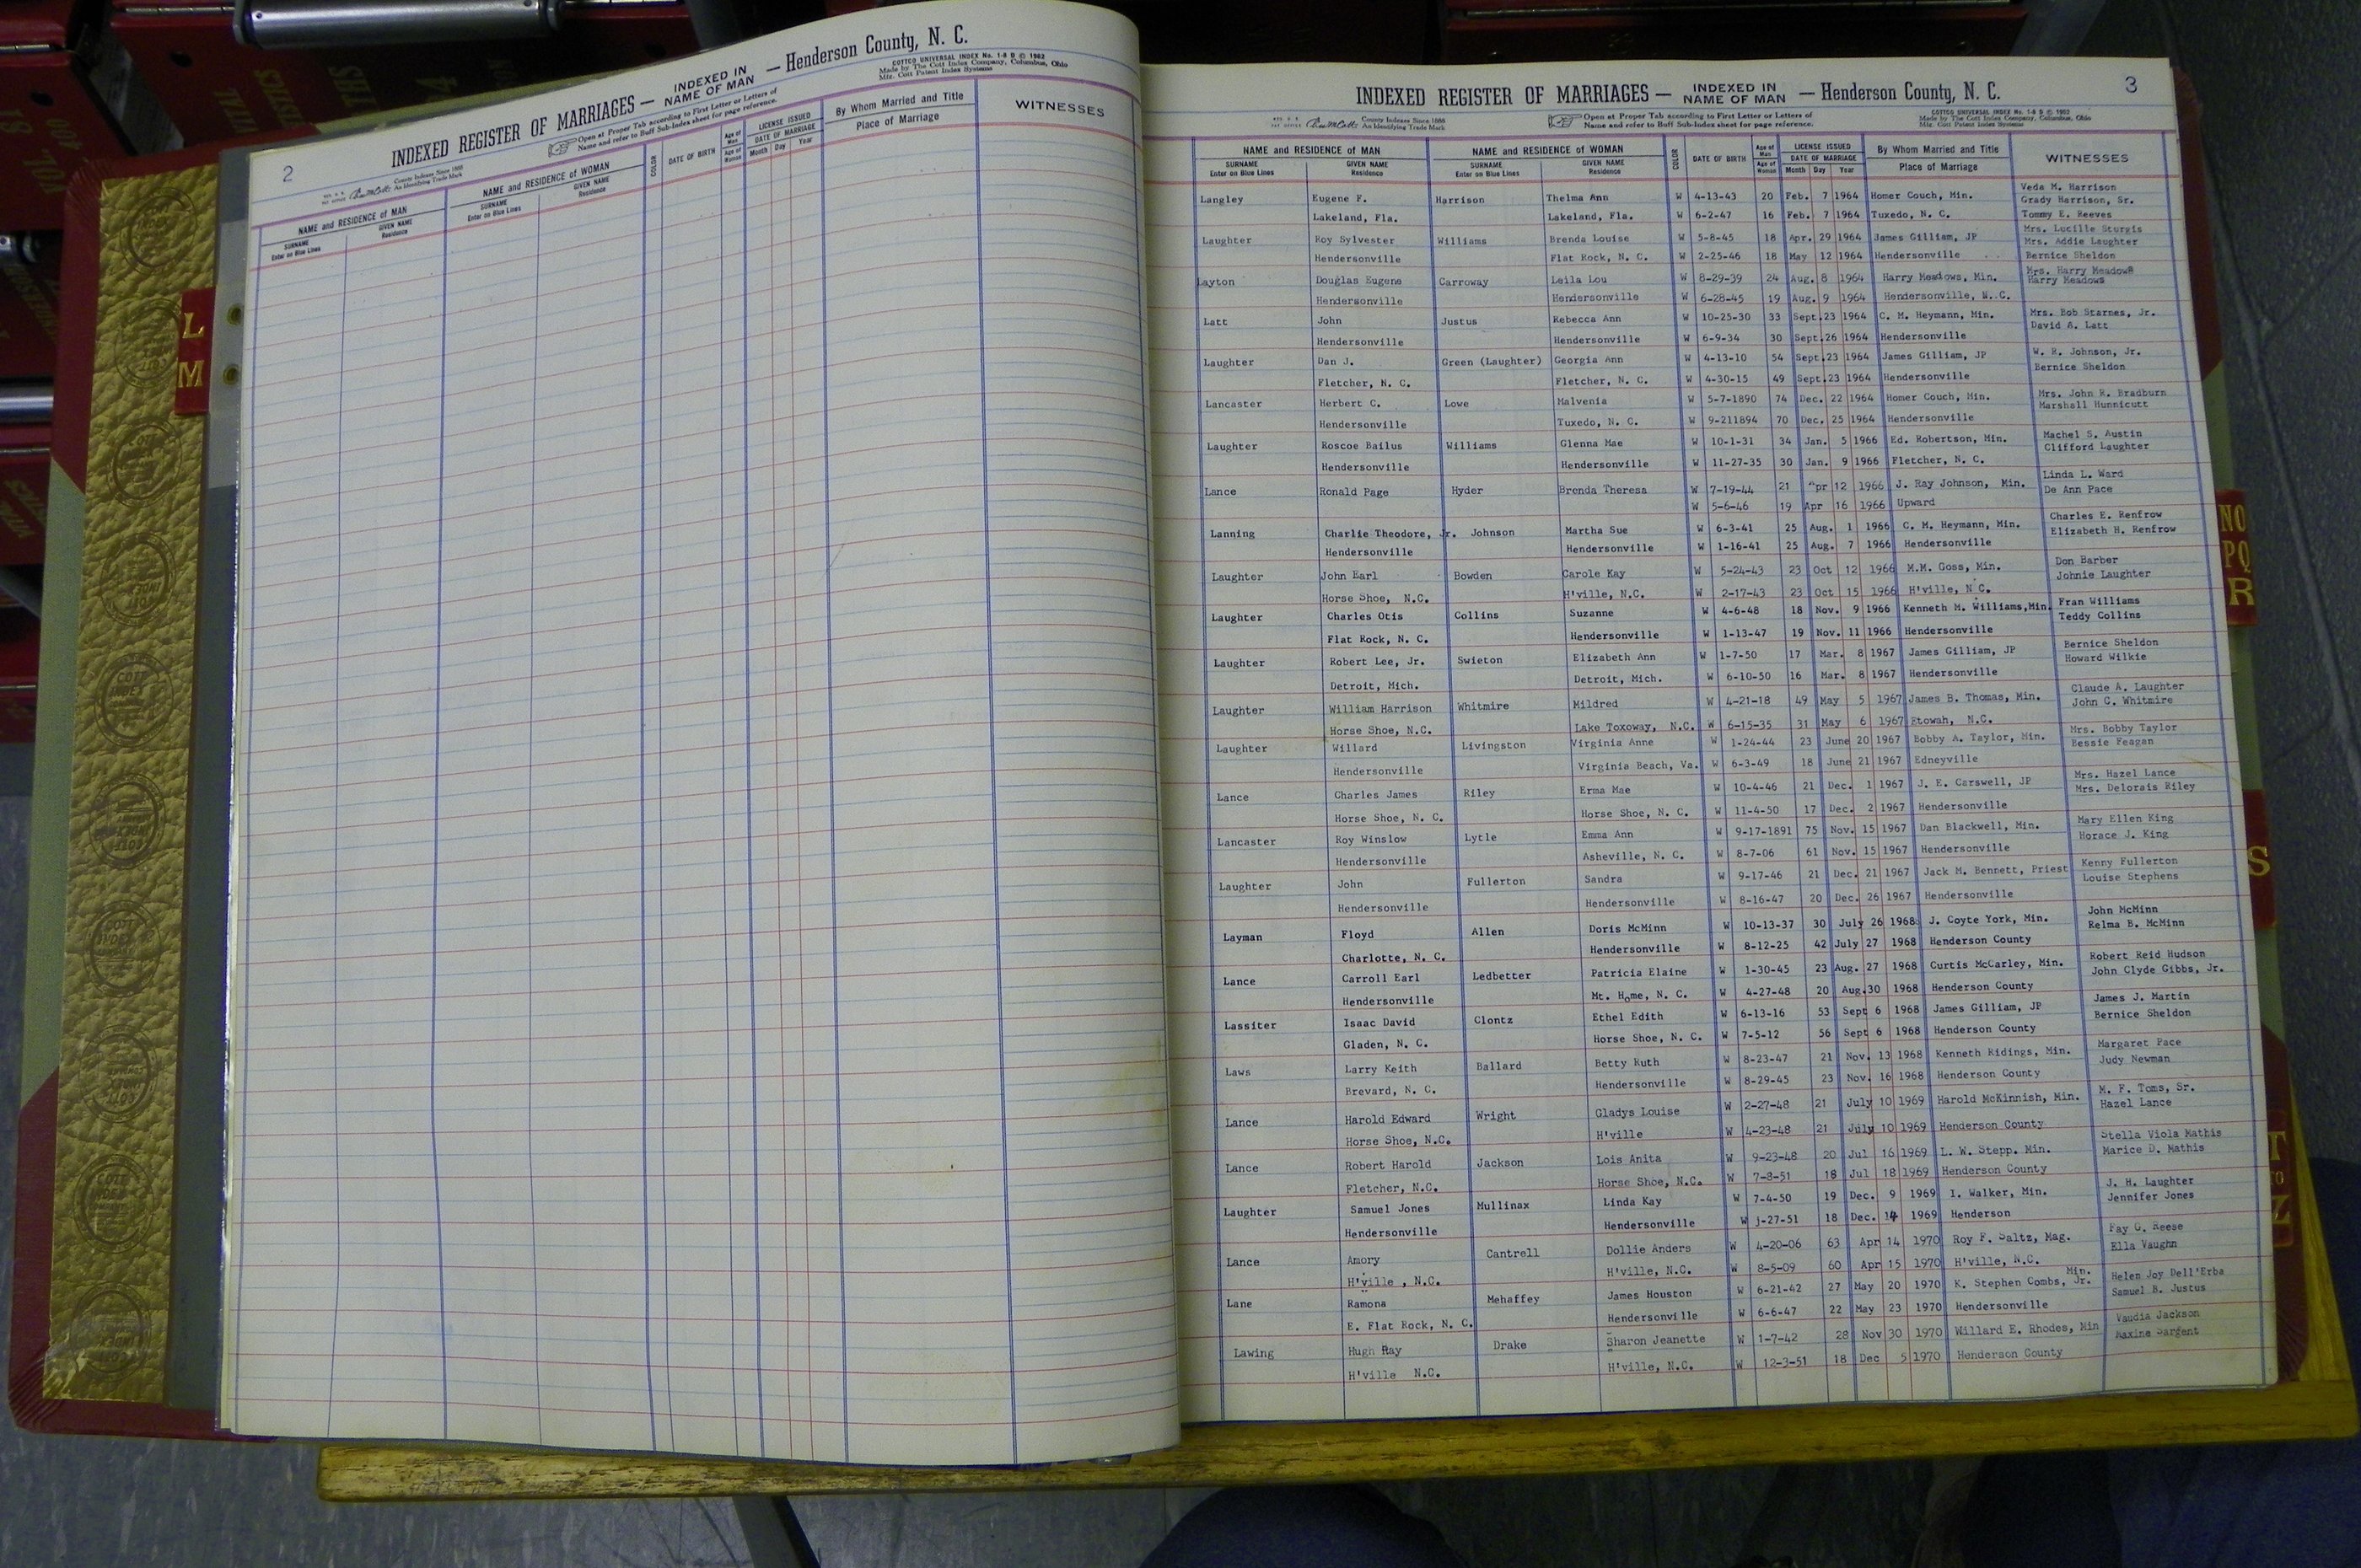 2
INDEXED REGISTER OF MARRIAGES — INDEXED IN NAME OF MAN — Henderson County, N. C.
COTTCO UNIVERSAL INDEX No. 1-8 B © 1962
Made by The Cott Index Company, Columbus, Ohio
Mfg. Cott Patent Index Systems
County Indexes Since 1888
An Identifying Trade Mark
Open at Proper Tab according to First Letter or Letters of
Name and refer to Buff Sub-Index sheet for page reference.
NAME and RESIDENCE of MAN NAME and RESIDENCE of WOMAN COLOR DATE OF BIRTH Age of Man LICENSE ISSUED By Whom Married and Title WITNESSES
SURNAME GIVEN NAME SURNAME GIVEN NAME Age of Woman DATE OF MARRIAGE Place of Marriage
Enter on Blue Lines Residence Enter on Blue Lines Residence Month Day Year
L
M
3
INDEXED REGISTER OF MARRIAGES — INDEXED IN NAME OF MAN — Henderson County, N. C.
COTTCO UNIVERSAL INDEX No. 1-8 B © 1962
Made by The Cott Index Company, Columbus, Ohio
Mfg. Cott Patent Index Systems
County Indexes Since 1888
An Identifying Trade Mark
Open at Proper Tab according to First Letter or Letters of
Name and refer to Buff Sub-Index sheet for page reference.
NAME and RESIDENCE of MAN NAME and RESIDENCE of WOMAN COLOR DATE OF BIRTH Age of Man LICENSE ISSUED By Whom Married and Title WITNESSES
SURNAME GIVEN NAME SURNAME GIVEN NAME Age of Woman DATE OF MARRIAGE Place of Marriage
Enter on Blue Lines Residence Enter on Blue Lines Residence Month Day Year
Veda M. Harrison
Langley Eugene F. Harrison Thelma Ann W 4-13-43 20 Feb. 7 1964 Homer Couch, Min. Grady Harrison, Sr.
Lakeland, Fla. Lakeland, Fla. W 6-2-47 16 Feb. 7 1964 Tuxedo, N. C. Tommy E. Reeves
Mrs. Lucille Sturgis
Laughter Roy Sylvester Williams Brenda Louise W 5-8-45 18 Apr. 29 1964 James Gilliam, JP Mrs. Addie Laughter
Hendersonville Flat Rock, N. C. W 2-25-46 18 May 12 1964 Hendersonville Bernice Sheldon
Layton Douglas Eugene Carroway Leila Lou W 8-29-39 24 Aug. 8 1964 Harry Meadows, Min. Mrs. Harry Meadows
Harry Meadows
Hendersonville Hendersonville W 6-28-45 19 Aug. 9 1964 Hendersonville, N. C.
Latt John Justus Rebecca Ann W 10-25-30 33 Sept. 23 1964 C. M. Heymann, Min. Mrs. Bob Starnes, Jr.
David A. Latt
Hendersonville Hendersonville W 6-9-34 30 Sept. 26 1964 Hendersonville
Laughter Dan J. Green (Laughter) Georgia Ann W 4-13-10 54 Sept. 23 1964 James Gilliam, JP W. R. Johnson, Jr.
Bernice Sheldon
Fletcher, N. C. Fletcher, N. C. W 4-30-15 49 Sept. 23 1964 Hendersonville
Lancaster Herbert C. Lowe Malvenia W 5-7-1890 74 Dec. 22 1964 Homer Couch, Min. Mrs. John R. Bradburn
Marshall Hunnicutt
Hendersonville Tuxedo, N. C. W 9-211894 70 Dec. 25 1964 Hendersonville
Laughter Roscoe Bailus Williams Glenna Mae W 10-1-31 34 Jan. 5 1966 Ed. Robertson, Min. Machel S. Austin
Clifford Laughter
Hendersonville Hendersonville W 11-27-35 30 Jan. 9 1966 Fletcher, N. C.
Linda L. Ward
Lance Ronald Page Hyder Brenda Theresa W 7-19-44 21 Apr 12 1966 J. Ray Johnson, Min. De Ann Pace
W 5-6-46 19 Apr 16 1966 Upward
Charles E. Renfrow
Lanning Charlie Theodore, Jr. Johnson Martha Sue W 6-3-41 25 Aug. 1 1966 C. M. Heymann, Min. Elizabeth H. Renfrow
Hendersonville Hendersonville W 1-16-41 25 Aug. 7 1966 Hendersonville
Don Barber
Laughter John Earl Bowden Carole Kay W 5-24-43 23 Oct 12 1966 M.M. Goss, Min. Johnie Laughter
Horse Shoe, N.C. H'ville, N.C. W 2-17-43 23 Oct 15 1966 H'ville, N C.
Laughter Charles Otis Collins Suzanne W 4-6-48 18 Nov. 9 1966 Kenneth M. Williams,Min. Fran Williams
Teddy Collins
Flat Rock, N. C. Hendersonville W 1-13-47 19 Nov. 11 1966 Hendersonville
Bernice Sheldon
Laughter Robert Lee, Jr. Swieton Elizabeth Ann W 1-7-50 17 Mar. 8 1967 James Gilliam, JP Howard Wilkie
Detroit, Mich. Detroit, Mich. W 6-10-50 16 Mar. 8 1967 Hendersonville
Claude A. Laughter
Laughter William Harrison Whitmire Mildred W 4-21-18 49 May 5 1967 James B. Thomas, Min. John C. Whitmire
Horse Shoe, N.C. Lake Toxoway, N.C. W 6-15-35 31 May 6 1967 Etowah, N.C.
Mrs. Bobby Taylor
Laughter Willard Livingston Virginia Anne W 1-24-44 23 June 20 1967 Bobby A. Taylor, Min. Bessie Feagan
Hendersonville Virginia Beach, Va. W 6-3-49 18 June 21 1967 Edneyville
Mrs. Hazel Lance
Lance Charles James Riley Erma Mae W 10-4-46 21 Dec. 1 1967 J. E. Carswell, JP Mrs. Delorais Riley
Horse Shoe, N. C. Horse Shoe, N. C. W 11-4-50 17 Dec. 2 1967 Hendersonville
Mary Ellen King
Lancaster Roy Winslow Lytle Emma Ann W 9-17-1891 75 Nov. 15 1967 Dan Blackwell, Min. Horace J. King
Hendersonville Asheville, N. C. W 8-7-06 61 Nov. 15 1967 Hendersonville
Kenny Fullerton
Laughter John Fullerton Sandra W 9-17-46 21 Dec. 21 1967 Jack M. Bennett, Priest Louise Stephens
Hendersonville Hendersonville W 8-16-47 20 Dec. 26 1967 Hendersonville
John McMinn
Layman Floyd Allen Doris McMinn W 10-13-37 30 July 26 1968 J. Coyte York, Min. Relma B. McMinn
Charlotte, N. C. Hendersonville W 8-12-25 42 July 27 1968 Henderson County
Robert Reid Hudson
Lance Carroll Earl Ledbetter Patricia Elaine W 1-30-45 23 Aug. 27 1968 Curtis McCarley, Min. John Clyde Gibbs, Jr.
Hendersonville Mt. Home, N. C. W 4-27-48 20 Aug. 30 1968 Henderson County
James J. Martin
Lassiter Isaac David Clontz Ethel Edith W 6-13-16 53 Sept 6 1968 James Gilliam, JP Bernice Sheldon
Gladen, N. C. Horse Shoe, N. C. W 7-5-12 56 Sept 6 1968 Henderson County
Margaret Pace
Laws Larry Keith Ballard Betty Ruth W 8-23-47 21 Nov. 13 1968 Kenneth Ridings, Min. Judy Newman
Brevard, N. C. Hendersonville W 8-29-45 23 Nov. 16 1968 Henderson County
M. F. Toms, Sr.
Lance Harold Edward Wright Gladys Louise W 2-27-48 21 July 10 1969 Harold McKinnish, Min. Hazel Lance
Horse Shoe, N.C. H'ville W 4-23-48 21 July 10 1969 Henderson County
Stella Viola Mathis
Lance Robert Harold Jackson Lois Anita W 9-23-48 20 Jul 16 1969 L. W. Stepp. Min. Marice D. Mathis
Fletcher, N.C. Horse Shoe, N.C. W 7-8-51 18 Jul 18 1969 Henderson County
J. H. Laughter
Laughter Samuel Jones Mullinax Linda Kay W 7-4-50 19 Dec. 9 1969 I. Walker, Min. Jennifer Jones
Hendersonville Hendersonville W -27-51 18 Dec. 14 1969 Henderson
Fay G. Reese
Lance Amory Cantrell Dollie Anders W 4-20-06 63 Apr 14 1970 Roy F. Saltz, Mag. Ella Vaughn
H'ville , N.C. H'ville, N.C. W 8-5-09 60 Apr 15 1970 H'ville, N.C.
Lane Ramona Mehaffey James Houston W 6-21-42 27 May 20 1970 K. Stephen Combs, Jr. Min. Helen Joy Dell'Erba
Samuel B. Justus
E. Flat Rock, N. C. Hendersonville W 6-6-47 22 May 23 1970 Hendersonville
Vaudia Jackson
Lawing Hugh Ray Drake Sharon Jeanette W 1-7-42 28 Nov 30 1970 Willard E. Rhodes, Min Maxine Sargent
H'ville N.C. H'ville, N.C. W 12-3-51 18 Dec 5 1970 Henderson County
NO
PQ
R
S
T
TO
Z